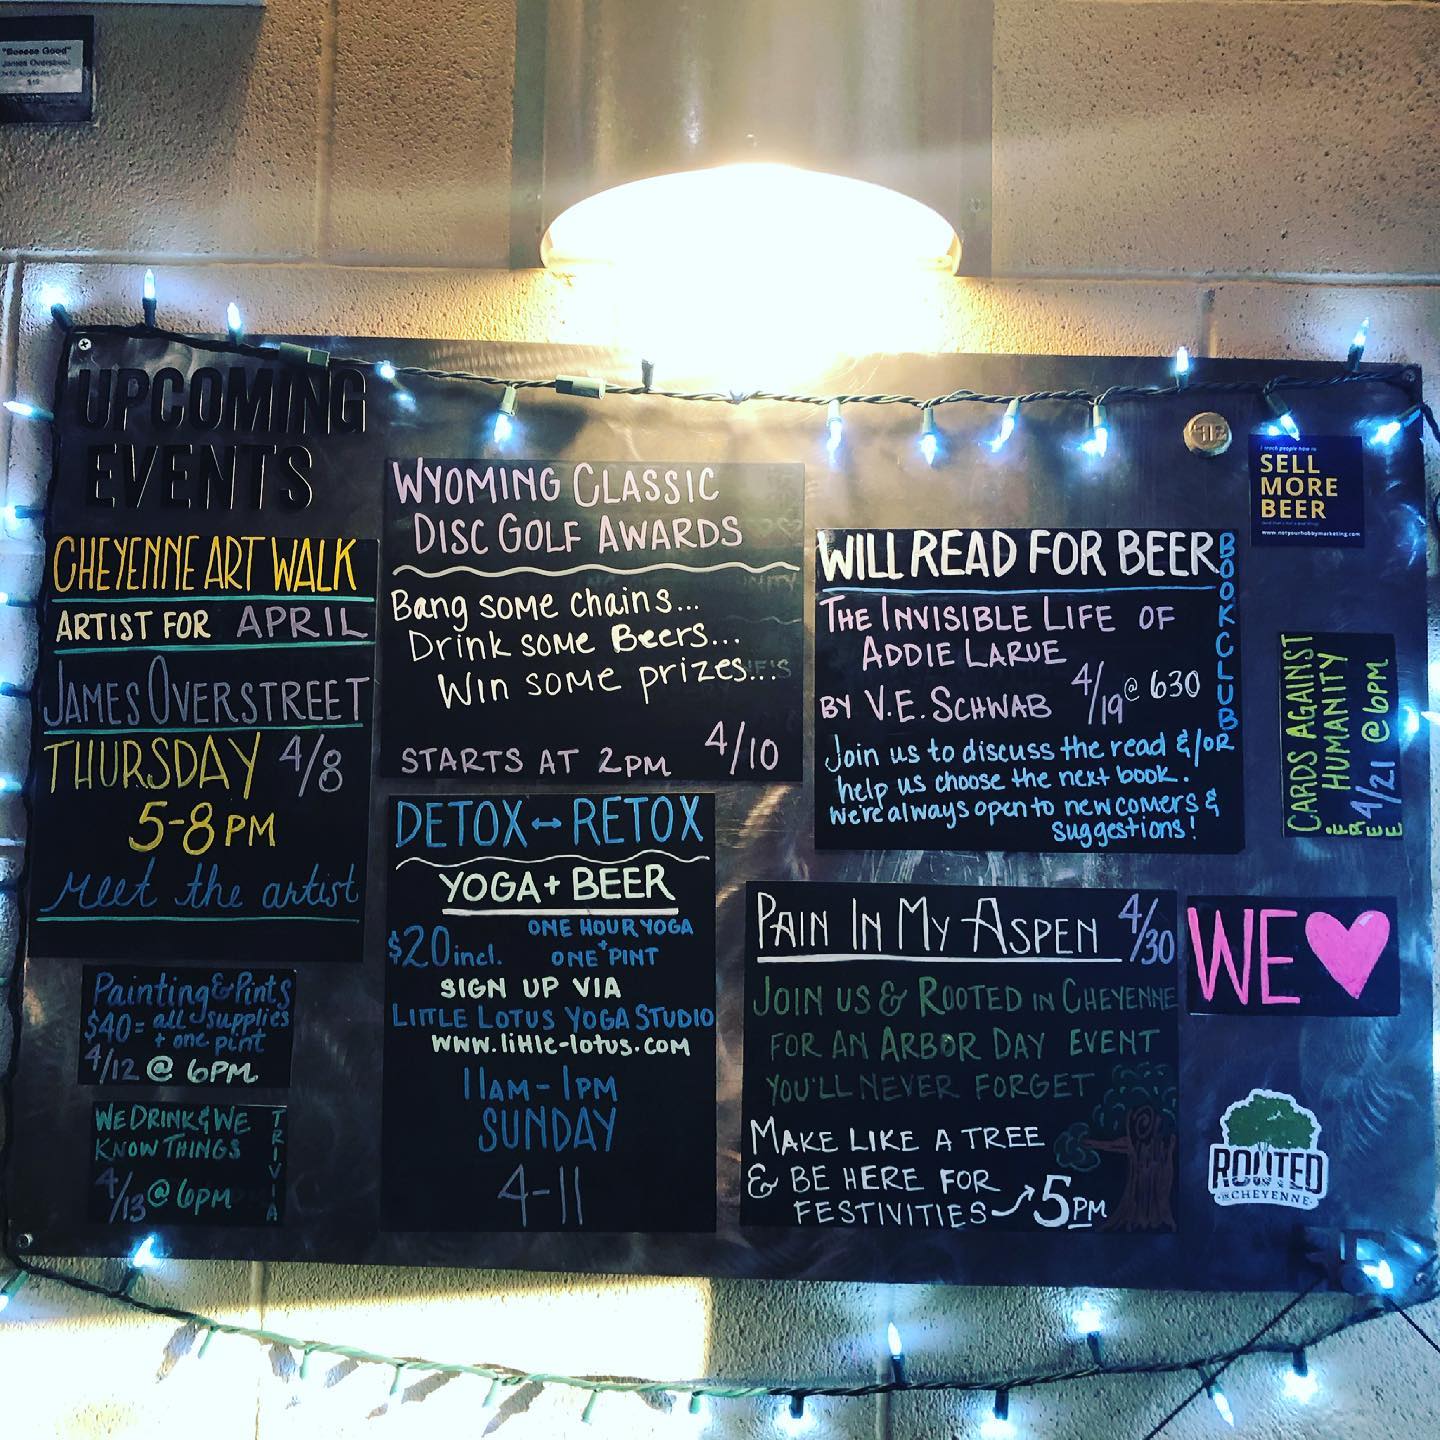 "Beeees Good"
James Overstreet
UPCOMING
EVENTS
CHEYENNE ART WALK
ARTIST FOR APRIL
JAMES OVERSTREET
THURSDAY 4/8
5-8 PM
Meet the artist
Painting & Pints
$40 = all supplies
+ one pint
4/12 @ 6PM
WE DRINK & WE
KNOW THINGS
4/13 @ 6PM
TRIVIA
WYOMING CLASSIC
DISC GOLF AWARDS
Bang some chains...
Drink some Beers...
Win some prizes...
STARTS AT 2PM 4/10
DETOX ↔ RETOX
YOGA + BEER
$20 incl. ONE HOUR YOGA
+
ONE PINT
SIGN UP VIA
LITTLE LOTUS YOGA STUDIO
www.little-lotus.com
11AM - 1PM
SUNDAY
4-11
WILL READ FOR BEER
BOOK CLUB
THE INVISIBLE LIFE OF
ADDIE LARUE
BY V.E. SCHWAB 4/19 @ 630
Join us to discuss the read &/OR
help us choose the next book.
We're always open to newcomers &
suggestions!
PAIN IN MY ASPEN 4/30
JOIN US & ROOTED IN CHEYENNE
FOR AN ARBOR DAY EVENT
YOU'LL NEVER FORGET
MAKE LIKE A TREE
& BE HERE FOR
FESTIVITIES → 5PM
I teach people how to
SELL
MORE
BEER
www.notyourhobbymarketing.com
CARDS AGAINST
HUMANITY
4/21 @ 6PM
WE
ROOTED
IN CHEYENNE